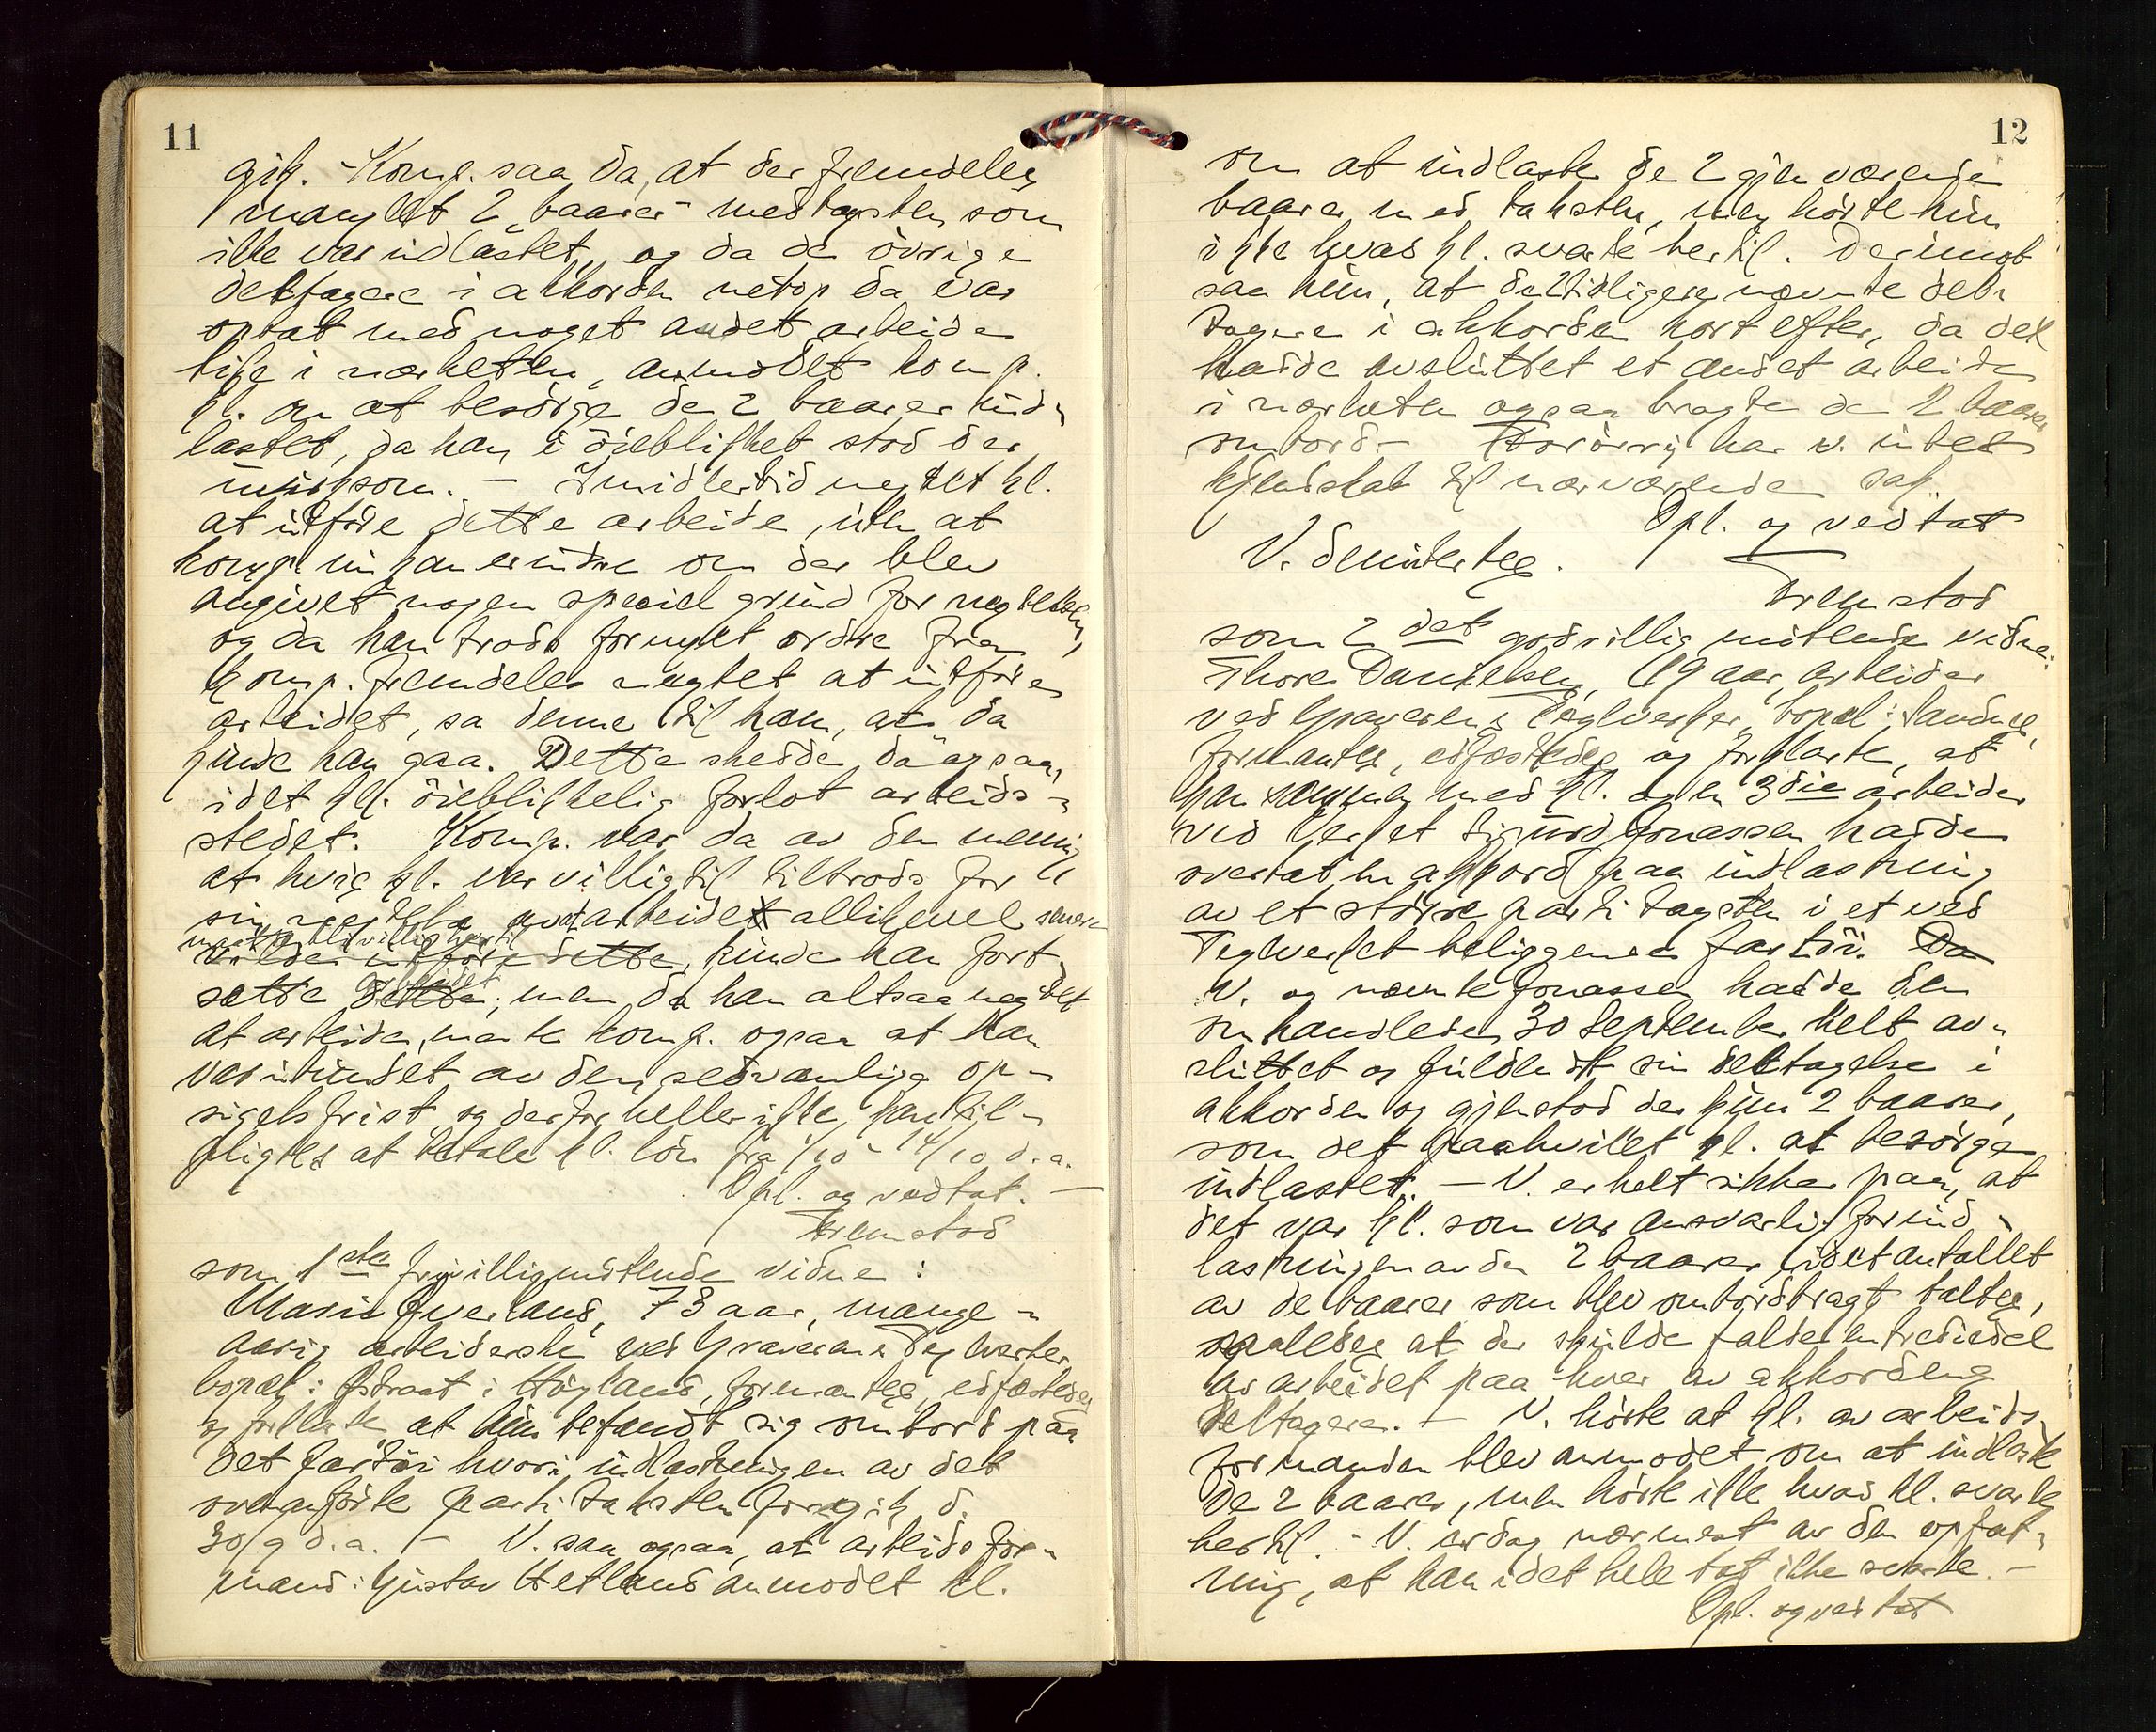 11
gik. - Komp. saa da, at der fremdeles
manglet 2 "baarer" med taksten som
ikke var indlastet, og da de övrige
deltagere i akkorden netop da var
optat med noget andet arbeide
like i nærheten, anmodet komp.
kl. om at besörge de 2 baarer ind-
lastet, da han i öieblikket stod der
unyksom. - Imidlertid negtet kl.
at utföre dette arbeide, uten at
komp. nu kan erindre om der blev
angivet nogen speciel grund for negtelsen,
og da han trods fornyet ordre fra
komp. fremdeles negtet at utföre
arbeidet, sa denne til ham, at "da
kunde han gaa." Dette skedde da ogsaa,
idet kl. öieblikkelig forlot arbeids-
stedet. Komp. var da av den mening
at hvis kl. var villig til tiltrods for
sin negtelse arbeidet allikevel senere
vilde utföre dette, kunde han fort-
sætte arbeidet; men da han altsaa negtet
at arbeide, mente komp. ogsaa at han
var ubundet av den sedvanlige op-
sigelsfrist og derfor heller ikke kan til-
pligtes at betale kl. lön fra 1/10 - 14/10 d.a.
Opl. og vedtat. -
Fremstod
som 1ste frivillig mötende vidne:
Maria Överland, 73 aar, mange-
aarig arbeiderske ved Graverens Teglverker,
bopæl: i Höyland, formantes, edfæstedes
og forklarte at hun befandt sig ombord paa
det fartöi hvori indlastningen av det
ovenanförte parti taksten foregik d.
30/9 d.a. - V. saa ogsaa, at arbeidsfor-
mand: Gustav Hetland anmodet kl.
12
om at indlaste de 2 gjenværende
baarer med taksten, men hörte hun
ikke hvad kl. svarte hertil. Derimot
saa hun, at de 2 tidligere nævnte del-
tagere i akkorden kort efter, da de
hadde avsluttet et andet arbeide
i nærheten ogsaa bragte de 2 baarer
ombord. - Forövrig har v. intet
kjendskab til nærværende sak.
Opl. og vedtat
V. demitertes.
Fremstod
som 2det godvillig mötende vidne:
Thore Danielsen, 19 aar, arbeider
ved Graverens Teglverker, bopæl: Sandnes,
formantes, edfæstedes og forklarte, at
han sammen med kl. og en 3die arbeider
ved Verket Sigurd Jonassen hadde
overtat en akkord paa indlastning
av et större parti tagsten i et ved
Teglverket beliggende fartöi. Da
V. og nævnte Jonassen hadde den
omhandlede 30 September helt av-
sluttet og fuldendt sin deltagelse i
akkorden og gjenstod der kun 2 baarer,
som det paahvilet kl. at besörge
indlastet. - V. er helt sikker paa, at
det var kl. som var ansvarlig for ind-
lastningen av de 2 baarer, idet antallet
av de baarer som blev ombordbragt taltes,
saaledes at der skulde falde en trediedel
av arbeidet paa hver av akkordens
deltagere. - V. hörte at kl. av arbeids-
formanden blev anmodet om at indlaste
de 2 baarer, men hörte ikke hvad kl. svarte
hertil. - V. er dog nærmest av den opfat-
ning, at han i det hele tat ikke svarte. -
Opl. og vedtat